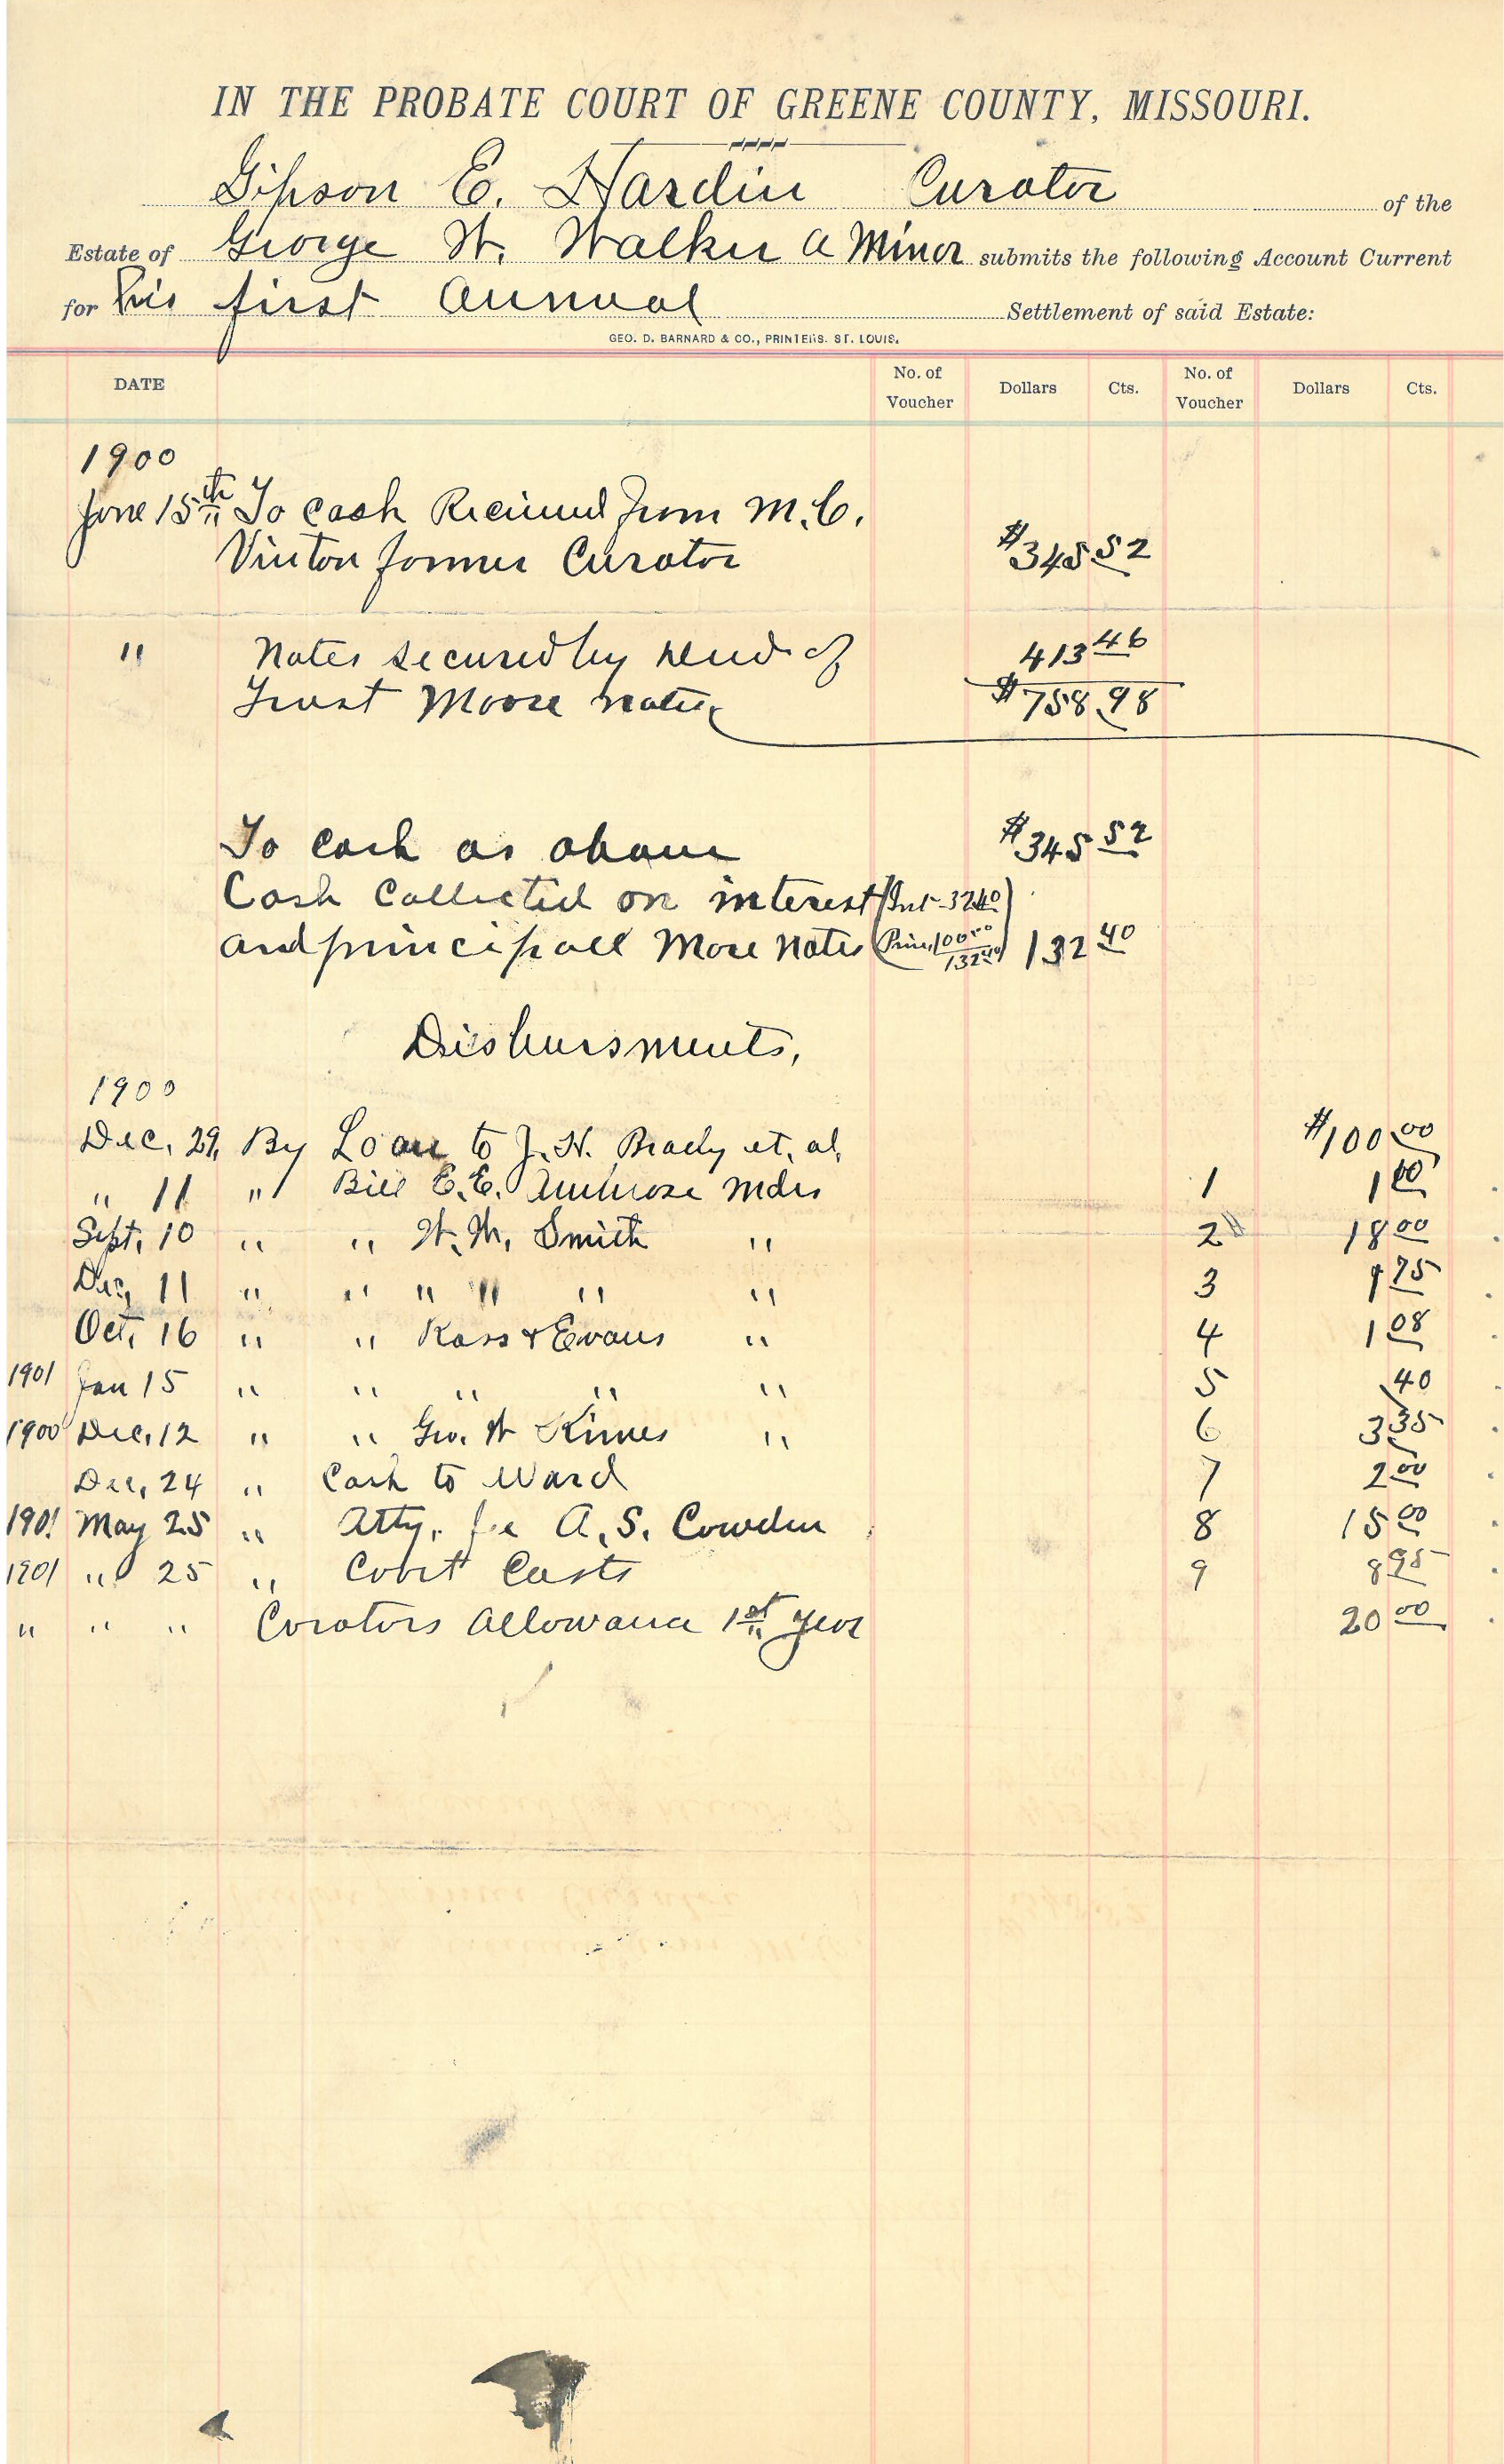 IN THE PROBATE COURT OF GREENE COUNTY, MISSOURI.
Gipson E. Hardin Curator of the
Estate of George W. Walker a Minor submits the following Account Current
for his first Annual Settlement of said Estate:
GEO. D. BARNARD & CO., PRINTERS. ST. LOUIS.
DATE No. of Voucher Dollars Cts. No. of Voucher Dollars Cts.
1900
June 15th To Cash Recieved from M.C.
Vinton former Curator $345 52
" Notes secured by deed of 413 46
Trust Moore notes $758.98
To Cash as above $345 52
Cash Collected on interest (Int - 32 40)
and principall More Notes (Prin 100 00 132 40) 132 40
Disbursments,
1900
Dec, 29, By Loan to J. H. Brady et, al, $100 00
" 11 " Bill E.E. Ambrose mdes 1 1 00
Sept, 10 " " W. M. Smith " 2 18 00
Dec, 11 " " " " " " 3 75
Oct, 16 " " Ross & Evans " 4 1 08
1901 Jan 15 " " " " " 5 40
1900 Dec, 12 " " Geo. W Kimes " 6 3 35
Dec, 24 " Cash to Ward 7 2 00
1901 May 25 " Atty, fee A. S. Cowden 8 15 00
1901 " 25 " Cobrt Casts 9 8 95
" " " Corators Allowance 1st year 20 00